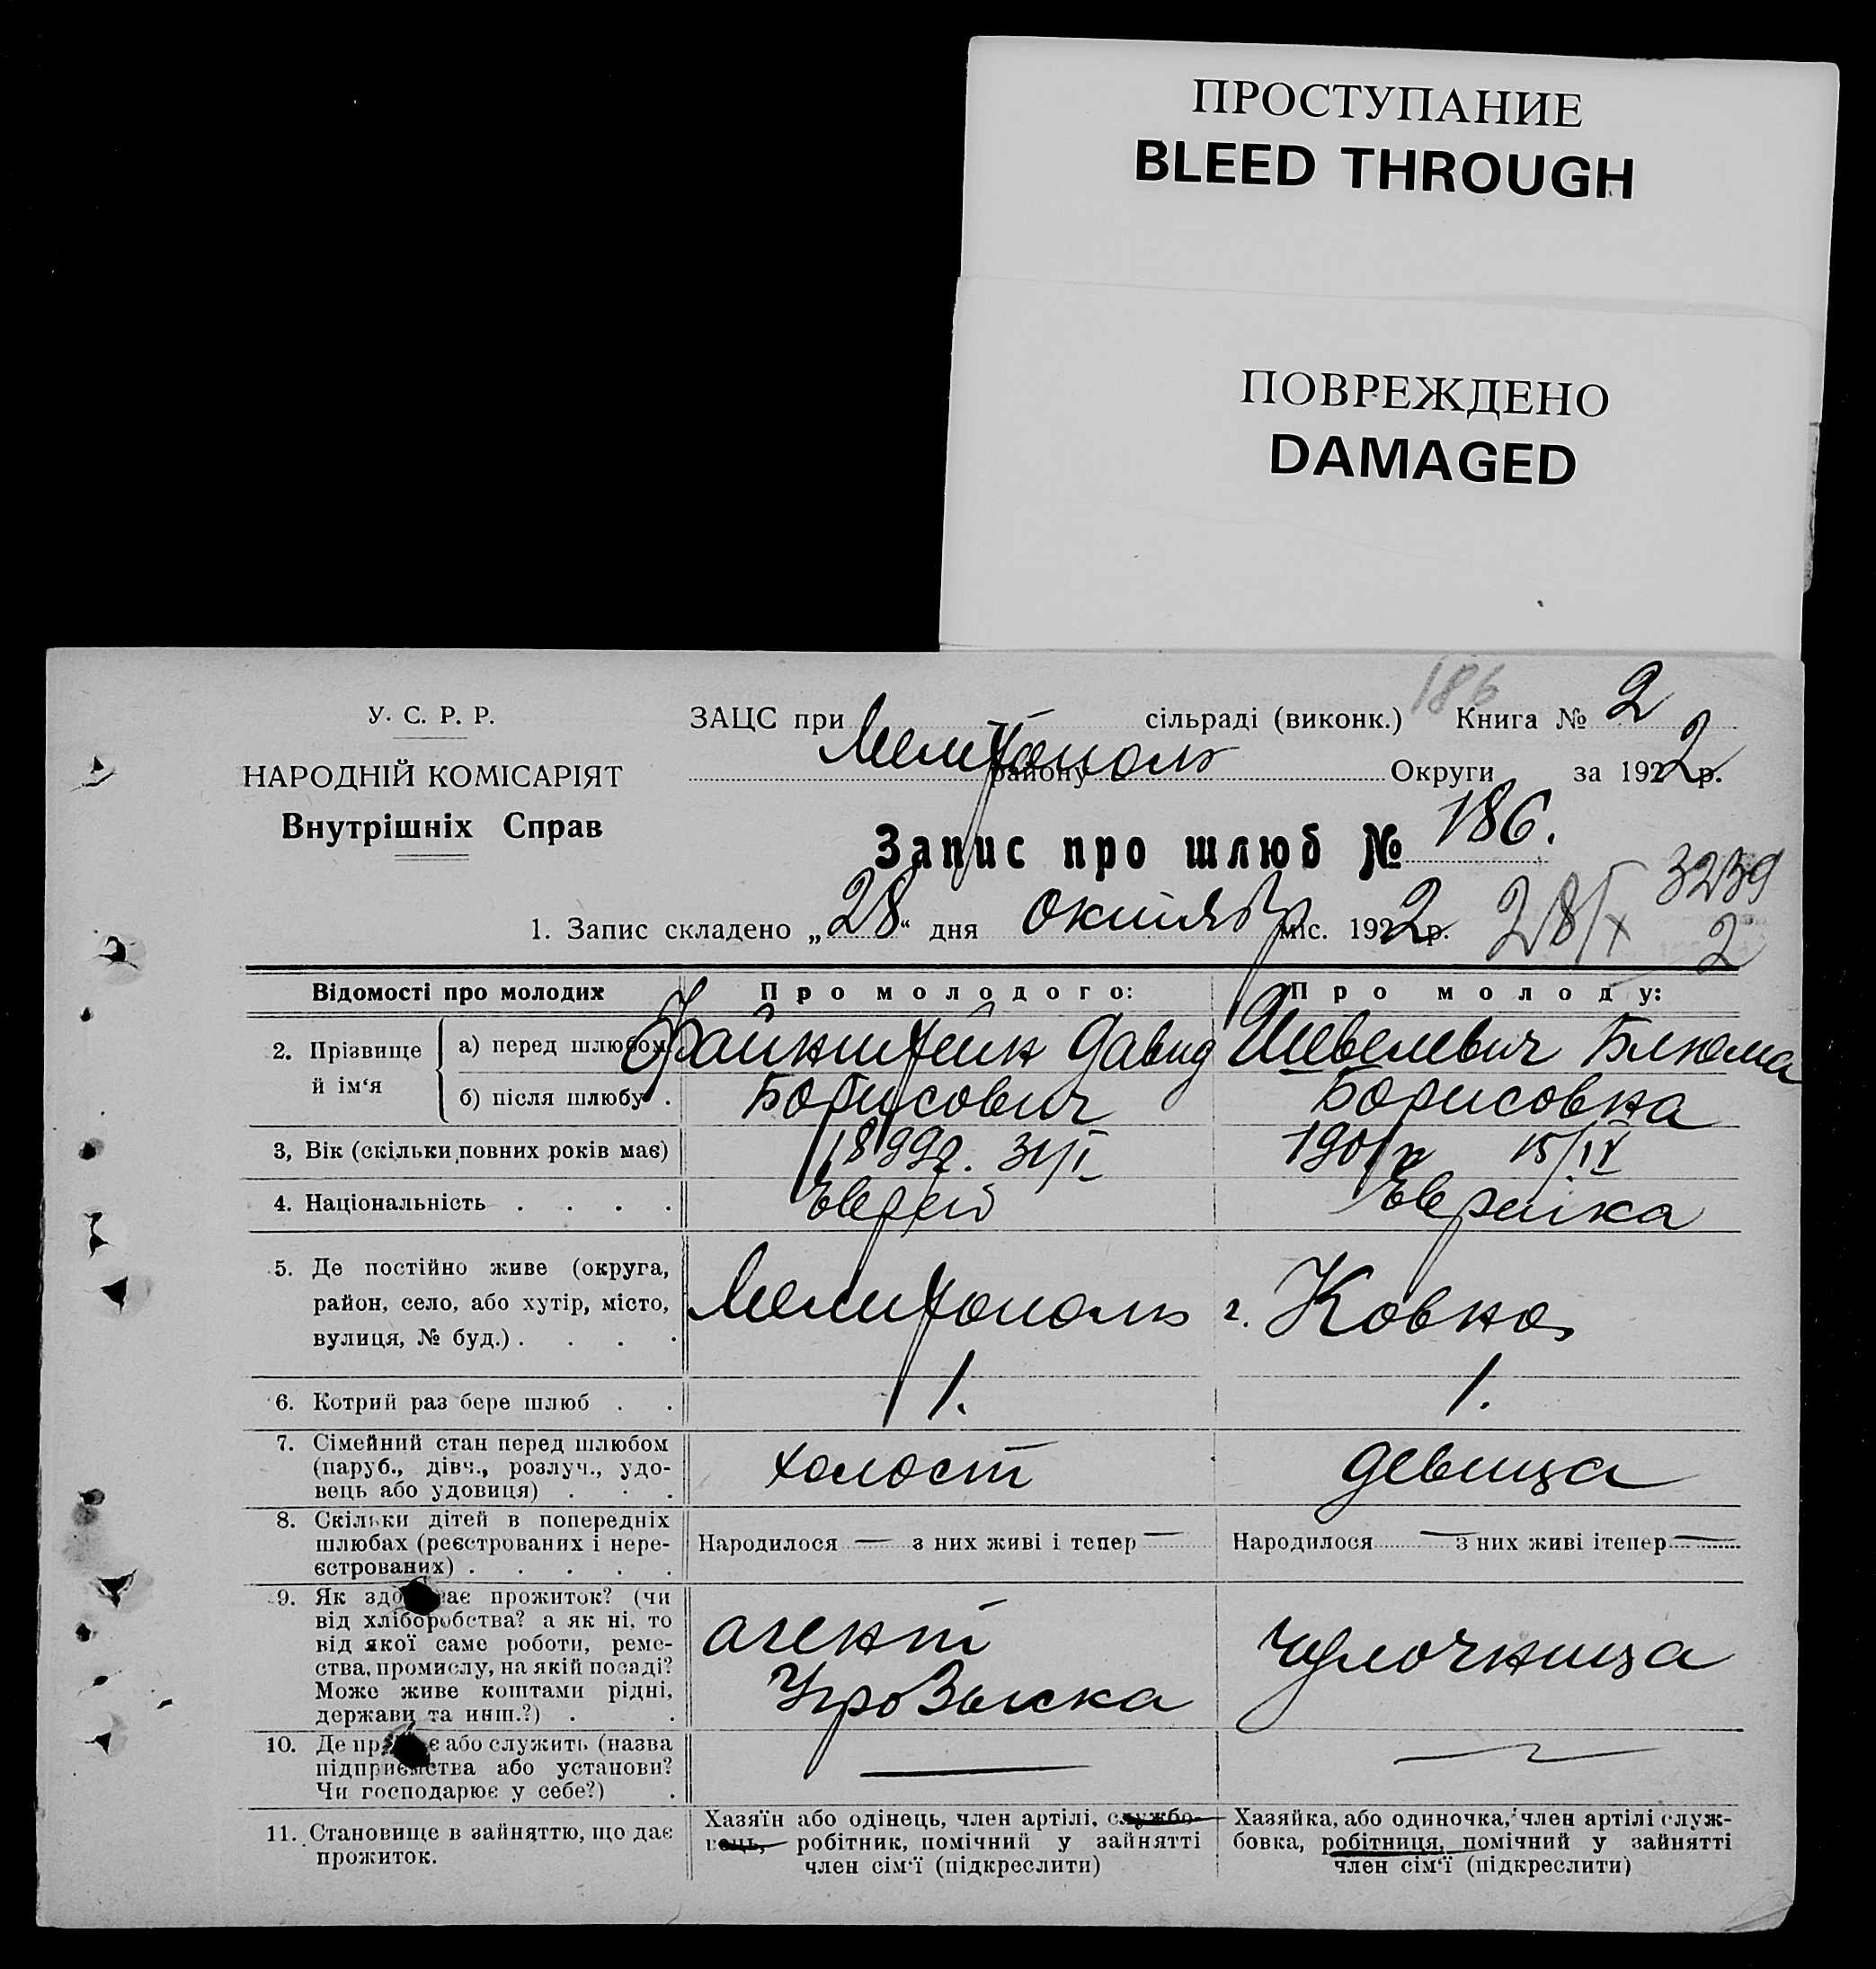 ПРОСТУПАНИЕ
BLEED THROUGH
ПОВРЕЖДЕНО
DAMAGED
186
У. С. Р. Р.
НАРОДНІЙ КОМІСАРІЯТ
Внутрішніх Справ
ЗАЦС при сільраді (виконк.) Книга № 2
Мелитополь району Округи за 1922 р.
Запис про шлюб № 186.
3239
1. Запис складено „28“ дня октября міс. 1922 р. 28/X 2
Відомості про молодих Про молодого: Про молоду:
2. Прізвище й ім‘я а) перед шлюбом Файнштейн Давид Шевелевич Блюма
б) після шлюбу . Борисович Борисовна
3, Вік (скільки повних років має) 1899г. 31/I 1901г 15/IV
4. Національність . . . . Еврей Еврейка
5. Де постійно живе (округа,
район, село, або хутір, місто,
вулиця, № буд.) . . . .
Мелитополь г. Ковно
6. Котрий раз бере шлюб . . 1. 1.
7. Сімейний стан перед шлюбом
(паруб., дівч., розлуч., удо-
вець або удовиця) . . .
холост девица
8. Скільки дітей в попередніх
шлюбах (реєстрованих і нере-
єстрованих) . . . . .
Народилося — з них живі і тепер — Народилося — з них живі ітепер —
9. Як здо ває прожиток? (чи
від хліборобства? а як ні, то
від якої саме роботи, реме-
ства, промислу, на якій посаді?
Може живе коштами рідні,
держави та инш.?) . .
агент
чулочница
10. Де пр є або служить (назва
підприємства або установи?
Чи господарює у себе?) .
— —
11. Становище в зайняттю, що дає
прожиток.
Хазяїн або одінець, член артілі, службо-
вець, робітник, помічний у зайнятті
член сім‘ї (підкреслити)
Хазяйка, або одиночка, член артілі служ-
бовка, робітниця, помічний у зайнятті
член сім‘ї (підкреслити)